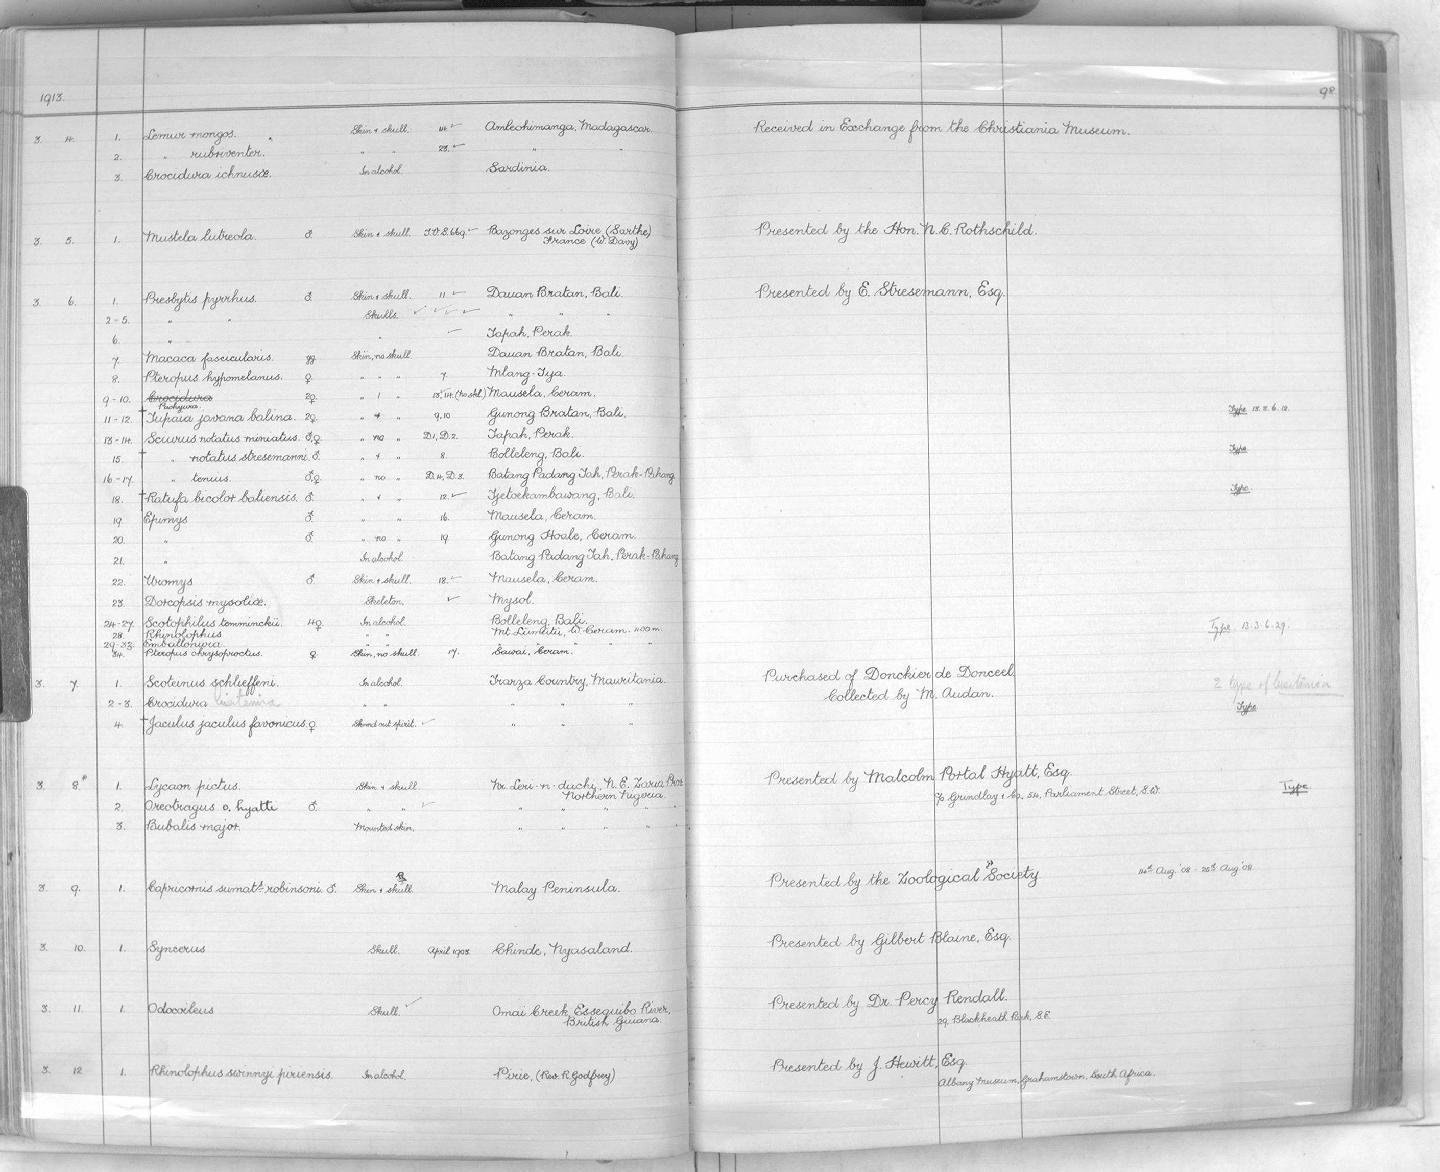 1913.
98
3. 4. 1. Lemur mongos. Skin + skull. 14. Ambohimanga, Madagascar. Received in Exchange from the Christiania Museum.
2. " rubriventer. " " 23. " "
3. Crocidura ichnusæ. In alcohol. Sardinia.
3. 5. 1. Mustela lutreola. ♂. Skin + skull. Bazonges sur Loire (Sarthe) Presented by the Hon. N. C. Rothschild.
France (W. Davy)
3. 6. 1. Presbytis pyrrhus. ♂. Skin + skull. 11 Dauan Bratan, Bali. Presented by E. Stresemann, Esq.
2-5. " " Skulls. " " "
6. " " Tapah, Perak.
7. Macaca fascicularis. Skin, no skull. Dauan Bratan, Bali.
8. Pteropus hypomelanus. ♀. " " " 7. Mlang-Iya.
9-10. Crocidura 2♀ " 1 " 13, 14. (no skl.) Mausela, Ceram.
Pachyura.
11-12. † Tupaia javana balina. 2♀ " + " 9, 10 Gunong Bratan, Bali, Type 13. 3. 6. 12.
13-14. Sciurus notatus miniatus. ♂,♀ " no " D.1, D.2. Tapah, Perak.
15. † " notatus stresemanni. ♂. " + " 8. Bolleleng, Bali. Type.
16-17. " tenuis. ♂,♀ " no " D.4, D.3. Batang Padang Jah, Perak-Pahang
18. † Ratufa bicolor baliensis. ♂. " + " 12. Tjetoekambawang, Bali. Type.
19. Epimys ♂. " " 16. Mausela, Ceram.
20. " ♂. " no " 19. Gunong Hoale, Ceram.
21. " In alcohol. Batang Padang Jah, Perak-Pahang
22. Uromys ♂. Skin + skull. 18. Mausela, Ceram.
23. Dorcopsis mysoliæ. Skeleton. Mysol.
24-27. Scotophilus temminckii. 4♀. In alcohol. Bolleleng, Bali.
28. Rhinolophus " " Mt Lumutu, W. Ceram. 1100 m. Type. 13.3.6.29.
29-33. Emballonura " " " " "
34. Pteropus chrysoproctus. ♀ Skin, no skull. 17. Sawai, Ceram.
3. 7. 1. Scoteinus schlieffeni. In alcohol. Trarza Country, Mauritania. Purchased of Donckier de Donceel.
Collected by M. Audan. 2 type of lusitania
2-3. Crocidura lusitania " " " " "
4. † Jaculus jaculus favonicus. ♀ Skinned out spirit. " " " Type.
3. 8. 1. Lycaon pictus. Skin + skull Nr. Leri-n-duchi, N. E. Zaria Prov. Presented by Malcolm Portal Hyatt, Esq.
Northern Nigeria. c/o Grindlay & Co. 54, Parliament Street, S.W. Type
2. Oreotragus o. hyatti ♂. " " " " " "
3. Bubalis major. Mounted skin. " " " "
3. 9. 1. Capricornis sumatr. robinsoni. ♂. Skin + skull. Malay Peninsula. Presented by the Zoological Society 14th Aug. '08 - 25th Aug '08
3. 10. 1. Syncerus Skull. April 1903. Chinde, Nyasaland. Presented by Gilbert Blaine, Esq.
3. 11. 1. Odocoileus Skull. Omai Creek, Essequibo River, Presented by Dr. Percy Rendall.
British Guiana. 29, Blackheath Park, S.E.
3. 12 1. Rhinolophus swinnyi piriensis. In alcohol. Pirie, (Rev. R. Godfrey) Presented by J. Hewitt, Esq.
Albany Museum, Grahamstown, South Africa.